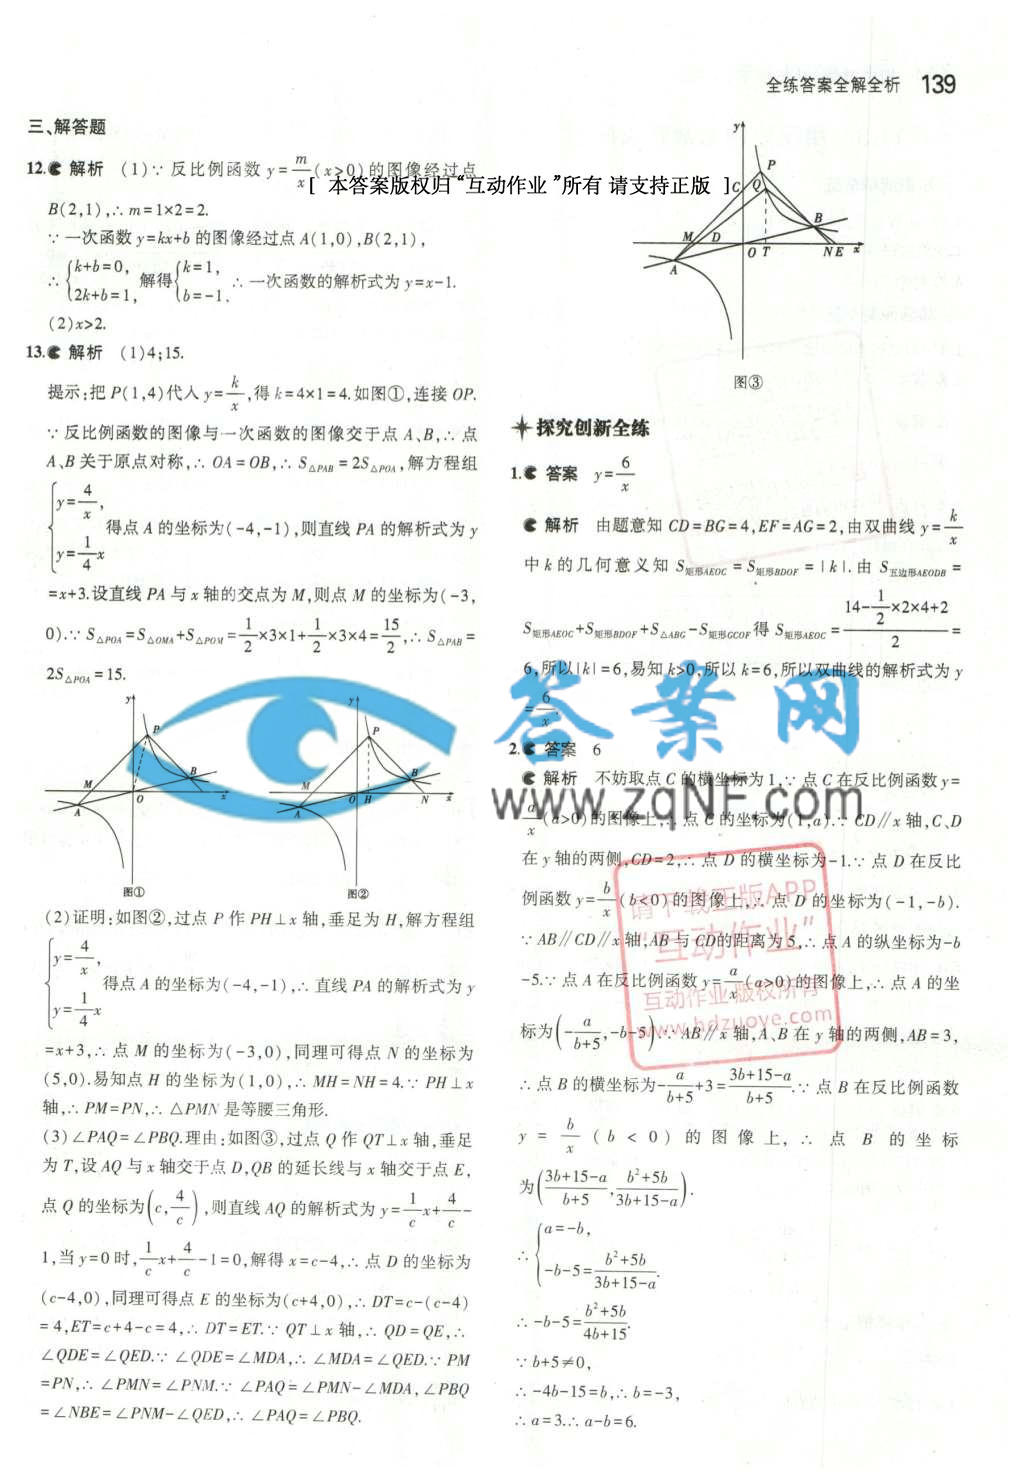 全练答案全解全析 139
三、解答题
12. 解析 (1)∵反比例函数 y=m/x(x>0)的图像经过点
[ 本答案版权归“互动作业”所有 请支持正版 ]
B(2,1),∴m=1×2=2.
∵一次函数 y=kx+b 的图像经过点 A(1,0),B(2,1),
∴{k+b=0, 2k+b=1, 解得{k=1, b=-1. ∴一次函数的解析式为 y=x-1.
(2)x>2.
13. 解析 (1)4;15.
提示:把 P(1,4)代入 y=k/x,得 k=4×1=4.如图①,连接 OP.
∵反比例函数的图像与一次函数的图像交于点 A、B,∴点
A、B 关于原点对称,∴OA=OB,∴S△PAB=2S△POA,解方程组
{y=4/x, y=1/4x 得点 A 的坐标为(-4,-1),则直线 PA 的解析式为 y
=x+3.设直线 PA 与 x 轴的交点为 M,则点 M 的坐标为(-3,
0).∵S△POA=S△OMA+S△POM=1/2×3×1+1/2×3×4=15/2,∴S△PAB=
2S△POA=15.
y P M B O x A
图①
y P M B O H N x A
图②
(2)证明:如图②,过点 P 作 PH⊥x 轴,垂足为 H,解方程组
{y=4/x, y=1/4x 得点 A 的坐标为(-4,-1),∴直线 PA 的解析式为 y
=x+3,∴点 M 的坐标为(-3,0),同理可得点 N 的坐标为
(5,0).易知点 H 的坐标为(1,0),∴MH=NH=4.∵PH⊥x
轴,∴PM=PN,∴△PMN 是等腰三角形.
(3)∠PAQ=∠PBQ.理由:如图③,过点 Q 作 QT⊥x 轴,垂足
为 T,设 AQ 与 x 轴交于点 D,QB 的延长线与 x 轴交于点 E,
点 Q 的坐标为(c,4/c),则直线 AQ 的解析式为 y=1/c x+4/c-
1,当 y=0 时,1/c x+4/c-1=0,解得 x=c-4,∴点 D 的坐标为
(c-4,0),同理可得点 E 的坐标为(c+4,0),∴DT=c-(c-4)
=4,ET=c+4-c=4,∴DT=ET.∵QT⊥x 轴,∴QD=QE,∴
∠QDE=∠QED.∵∠QDE=∠MDA,∴∠MDA=∠QED.∵PM
=PN,∴∠PMN=∠PNM.∵∠PAQ=∠PMN-∠MDA,∠PBQ
=∠NBE=∠PNM-∠QED,∴∠PAQ=∠PBQ.
y P C Q B M D O T N E x A
图③
探究创新全练
1. 答案 y=6/x
解析 由题意知 CD=BG=4,EF=AG=2,由双曲线 y=k/x
中 k 的几何意义知 S矩形AEOC=S矩形BDOF=|k|.由 S五边形AEODB=
S矩形AEOC+S矩形BDOF+S△ABG-S矩形GCOF得 S矩形AEOC=(14-1/2×2×4+2)/2=
6,所以|k|=6,易知 k>0,所以 k=6,所以双曲线的解析式为 y
=6/x.
答案网
www.zqNF.com
2. 答案 6
解析 不妨取点 C 的横坐标为 1,∵点 C 在反比例函数 y=
a/x(a>0)的图像上,∴点 C 的坐标为(1,a).∵CD∥x 轴,C、D
在 y 轴的两侧,CD=2,∴点 D 的横坐标为-1.∵点 D 在反比
例函数 y=b/x(b<0)的图像上,∴点 D 的坐标为(-1,-b).
∵AB∥CD∥x 轴,AB 与 CD的距离为 5,∴点 A 的纵坐标为-b
-5.∵点 A 在反比例函数 y=a/x(a>0)的图像上,∴点 A 的坐
标为(-a/(b+5),-b-5).∵AB∥x 轴,A、B 在 y 轴的两侧,AB=3,
∴点 B 的横坐标为-a/(b+5)+3=(3b+15-a)/(b+5).∵点 B 在反比例函数
y=b/x(b<0)的图像上,∴点 B 的坐标
为((3b+15-a)/(b+5),(b²+5b)/(3b+15-a)).
∴{a=-b, -b-5=(b²+5b)/(3b+15-a).
∴-b-5=(b²+5b)/(4b+15).
∵b+5≠0,
∴-4b-15=b,∴b=-3,
∴a=3.∴a-b=6.
请下载正版APP
“互动作业”
互动作业版权所有
www.hdzuoye.com